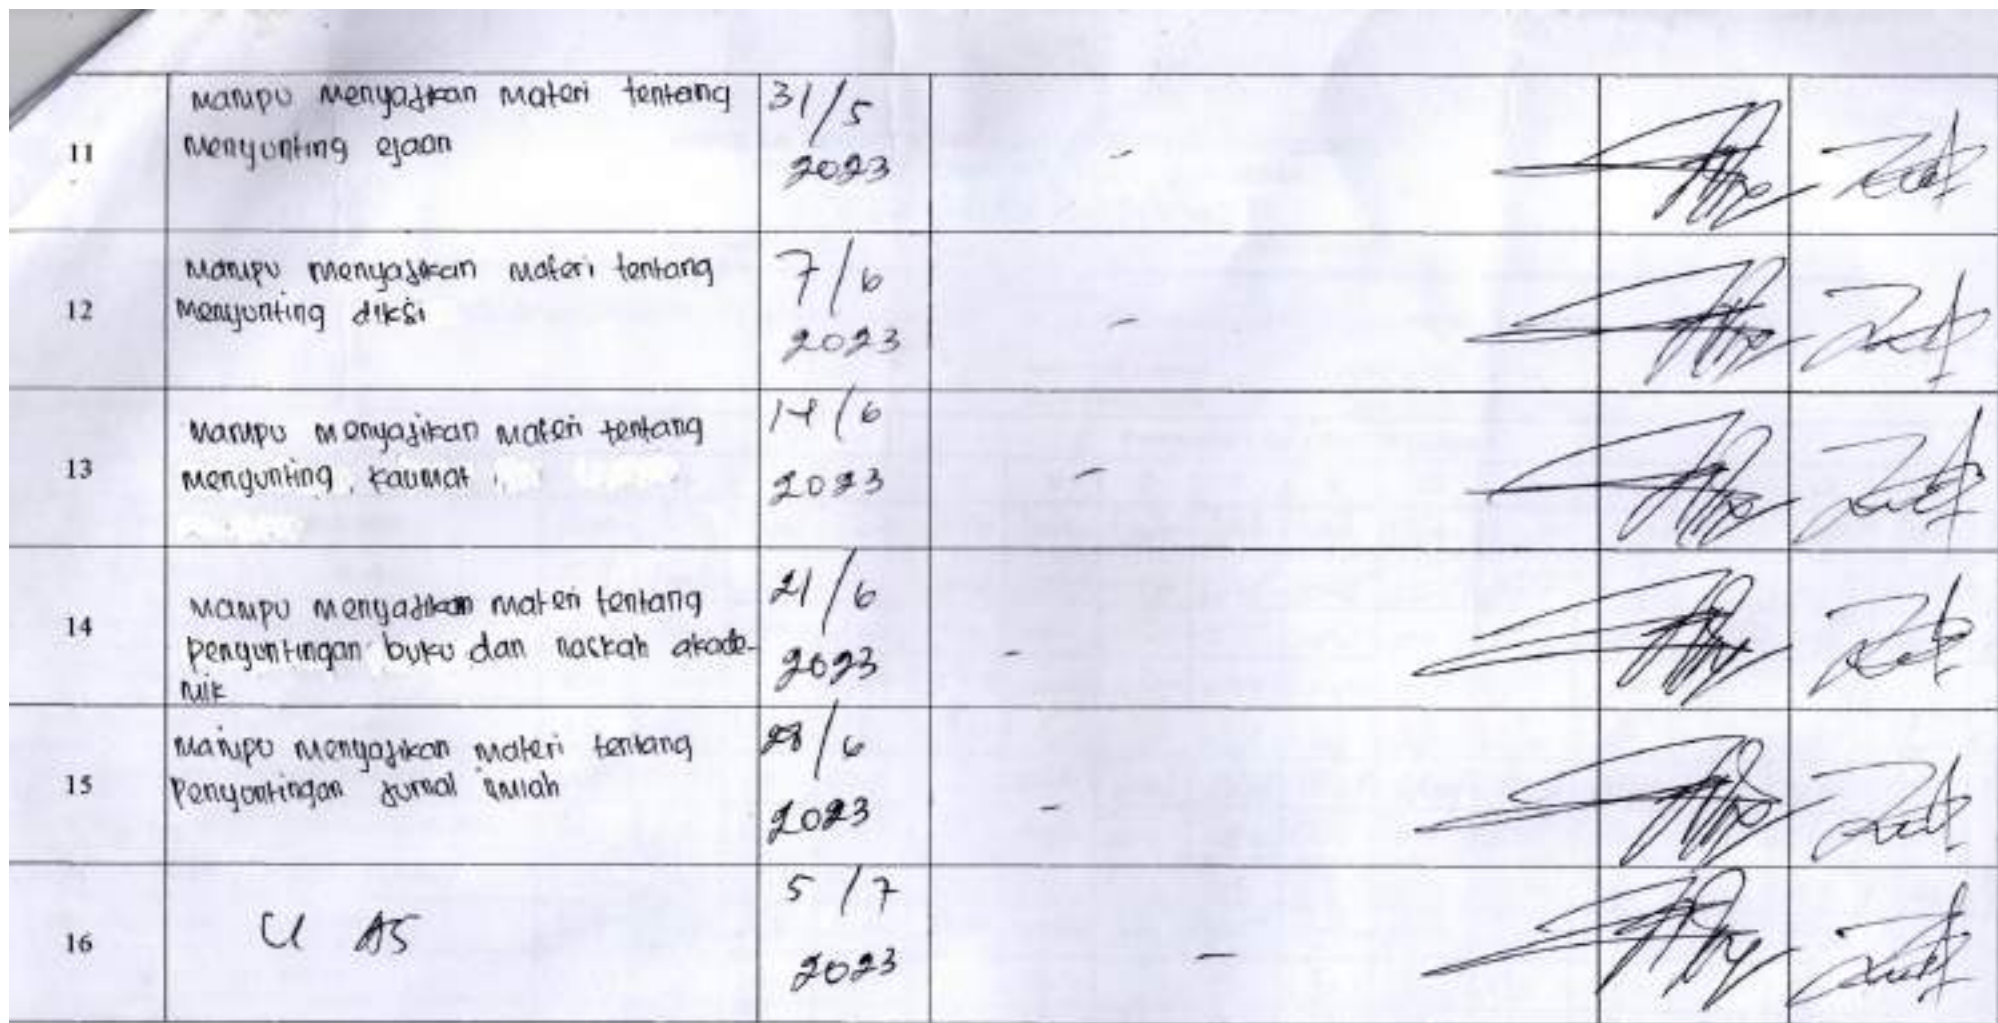 11
Mampu menyajikan materi tentang
menyunting ejaan
31/5
2023
-
12
Mampu menyajikan materi tentang
menyunting diksi
7/6
2023
-
13
Mampu menyajikan materi tentang
menyunting, kalimat
14/6
2023
-
14
Mampu menyajikan materi tentang
penyuntingan buku dan naskah akade-
mik
21/6
2023
-
15
Mampu menyajikan materi tentang
Penyuntingan jurnal ilmiah
28/6
2023
-
16
UAS
5/7
2023
-